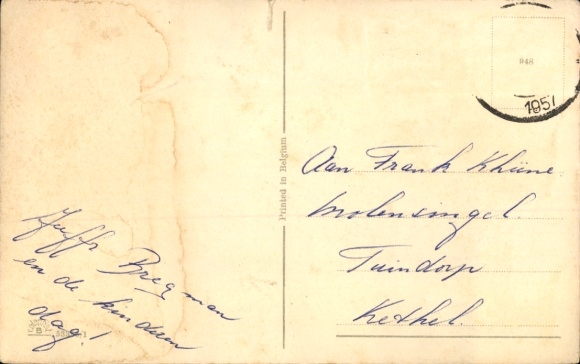 Juffr Bregman
en de kinderen
dag!
Printed in Belgium
948
1957
Aan Frank Khüne
Molensingel
Tuindorp
Kethel.